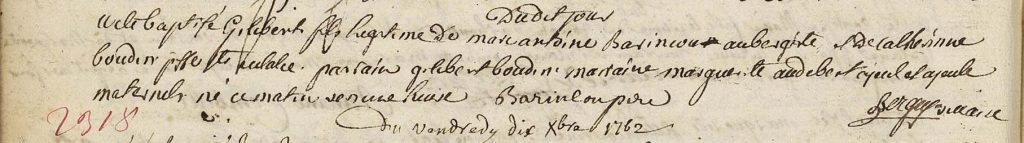 Dudit jour
a ete baptisé Gilibert fils legitime de marc antoine Barincou aubergiste et de catherinne
boudin psse ste eulalie. parrain gilibert boudin marraine marguerite audebert ayeul et ayeule
maternels né ce matin une heure Barincou pere
2318
Du vendredy dix Xbre 1762